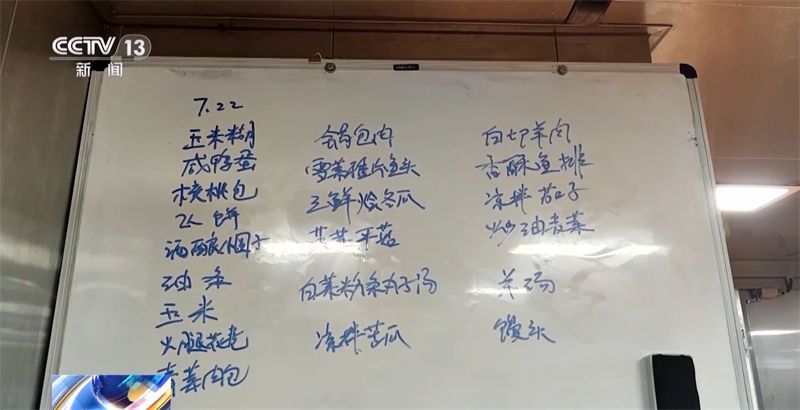 CCTV 13
新闻
7.22
玉米糊
咸鸭蛋
核桃包
饼
酒酿小圆子
油条
玉米
火腿花卷
青菜肉包
锅包肉
雪菜雅片鱼头
三鲜烩冬瓜
平菇
白菜粉条丸子汤
凉拌苦瓜
白切羊肉
香酥鱼排
凉拌茄子
炒油麦菜
羊汤
馒头